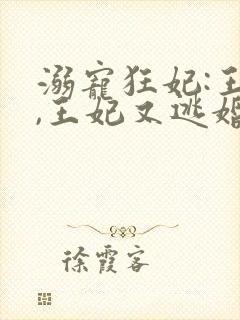 溺寵狂妃:王
,王妃又逃婚
徐霞客